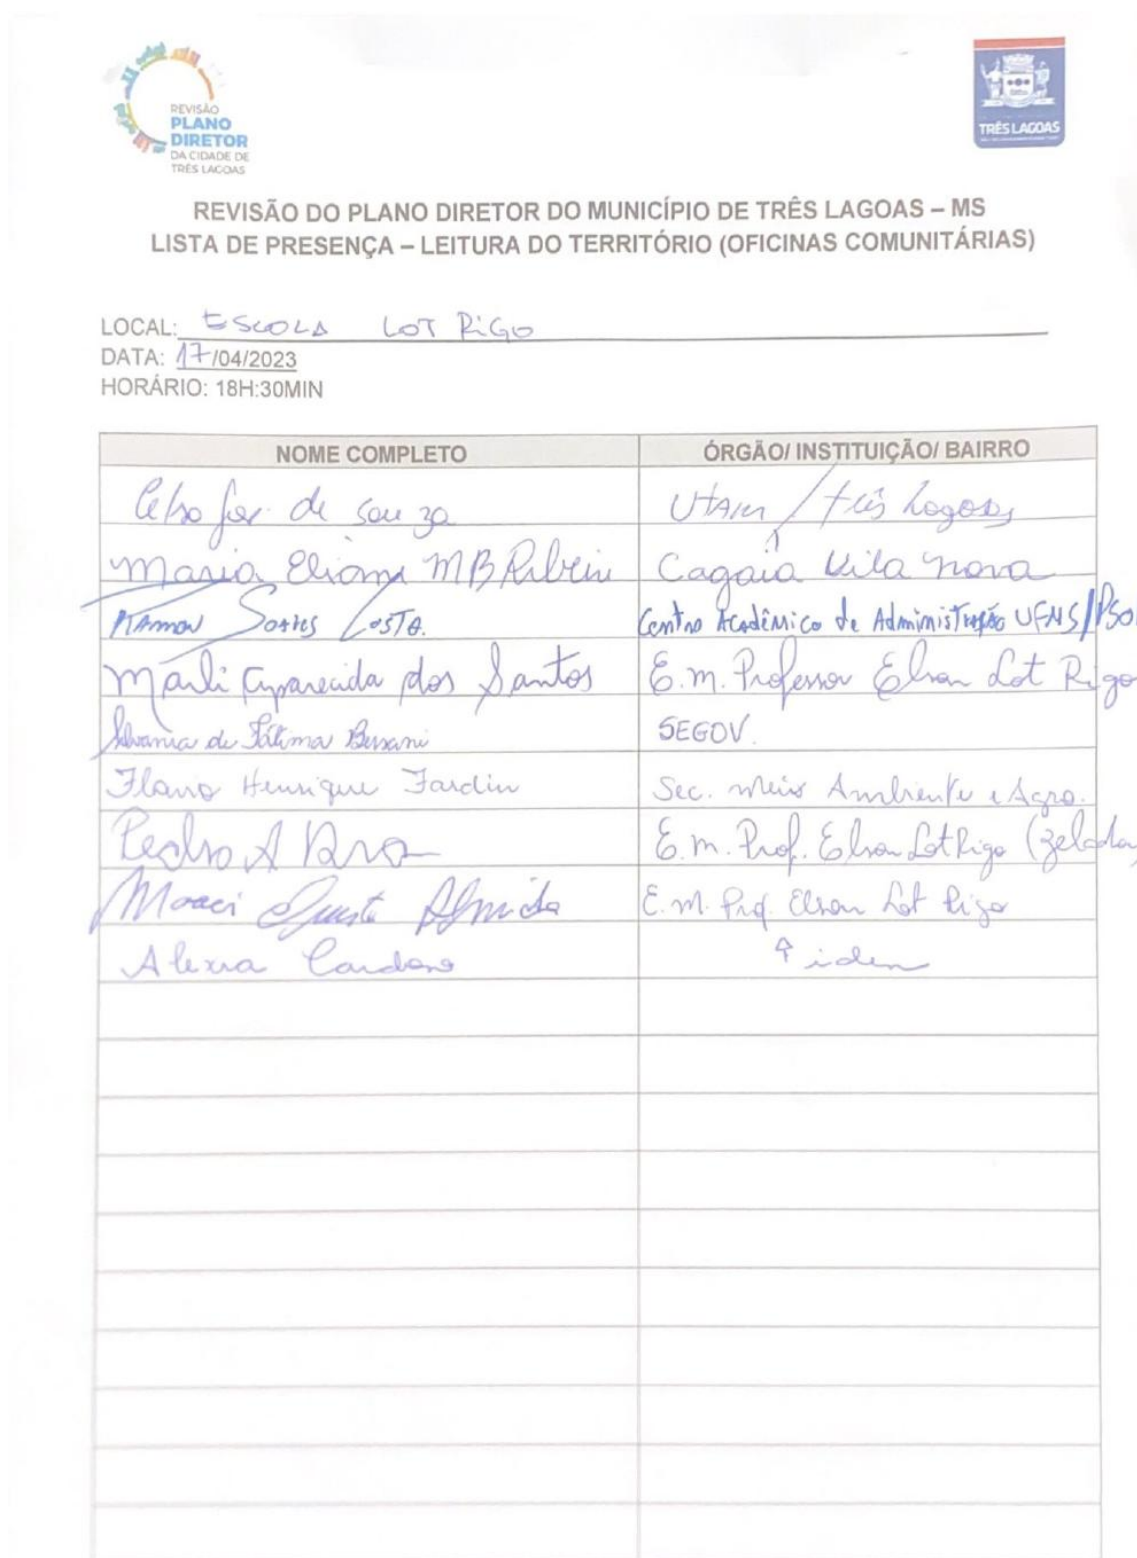 REVISÃO
PLANO
DIRETOR
DA CIDADE DE
TRÊS LAGOAS
TRÊS LAGOAS
REVISÃO DO PLANO DIRETOR DO MUNICÍPIO DE TRÊS LAGOAS – MS
LISTA DE PRESENÇA – LEITURA DO TERRITÓRIO (OFICINAS COMUNITÁRIAS)
LOCAL: ESCOLA LOT RIGO
DATA: 17/04/2023
HORÁRIO: 18H:30MIN
NOME COMPLETO ÓRGÃO/ INSTITUIÇÃO/ BAIRRO
Celso de Souza / três Lagoas
Maria Eliany MB Ribeiro Vila nova
Ramon Soares Costa. Centro Acadêmico de Administração UFMS/PSOL
Marli Aparecida dos Santos E.m. Professor Elson Lot Rigo
de Fátima SEGOV.
Flavio Henrique Fardin Sec. Meio Ambiente e Agro.
Pedro A E.m. Prof. Elson Lot Rigo
Moaci Almeida E.m. Prof. Elson Lot Rigo
Alexia Cardoso ↑ idem